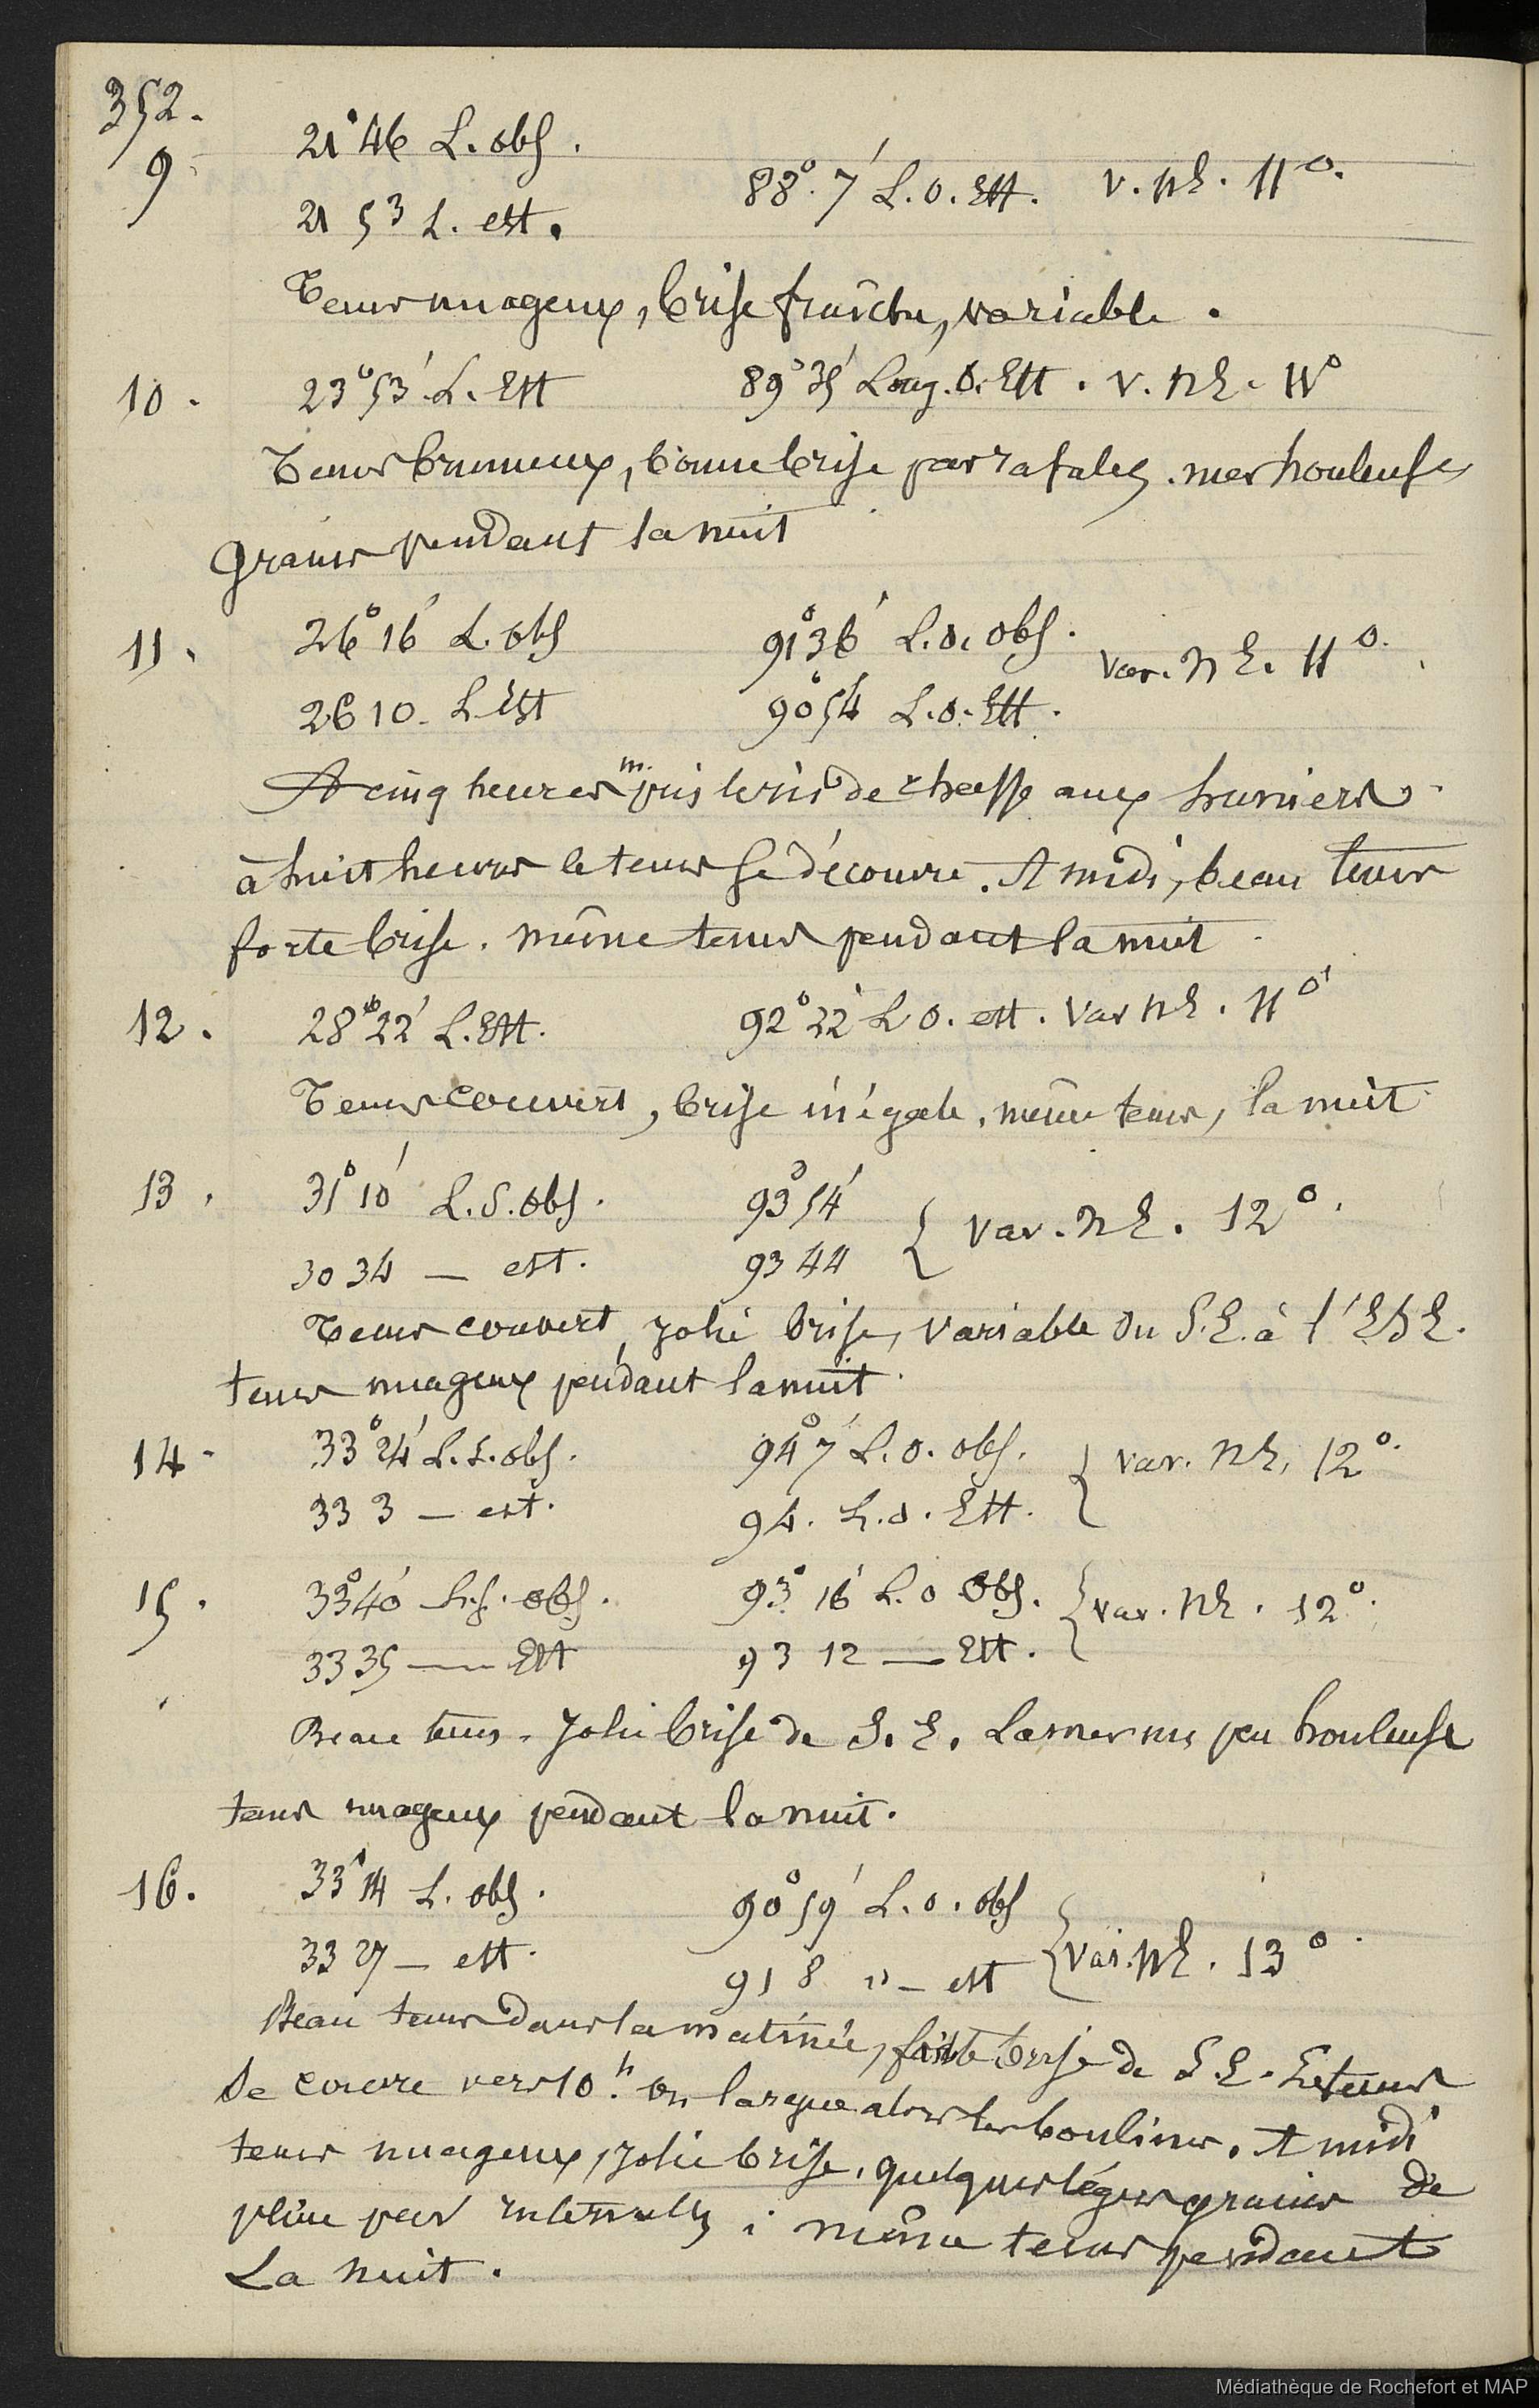 352.
9
21°46 L. obs.
88°.7' L.O. Est. V. NE. 11°.
21 53 L. est.
Tems nuageux, brise fraîche, variable.
10. 23°53' L. Est 89°35' Long. O. Est. V. NE. 11°
Tems brumeux, bonne brise par rafales. mer houleuse
Grains pendant la nuit
11. 26°16' L. obs 91°36' L.O. obs. Var. NE. 11°.
26 10. L. Est 90°54' L.O. Est.
A cinq heures m. pris le ris de chasse aux huniers
à huit heures le tems se découvre. A midi, beau tems
forte brise. même tems pendant la nuit
12. 28°22' L. Est. 92°22' L O. est. Var NE. 11°
Tems couvert, brise inégale, même tems, la nuit
13. 31°10' L.S. obs. 93°54' { Var. NE. 12°.
30 34 — est. 93 44
Tems couvert, jolie brise, variable du S.E. à l'ESE.
tems nuageux pendant la nuit.
14. 33°24' L.S. obs. 94°7' L.O. obs. { var. NE. 12°.
33 3 — est. 94. L.O. Est.
15. 33°40' L.S. obs. 93° 16' L.O Obs. { var. NE. 12°.
33 35 — Est 93 12 — Est.
Beau tems. Jolie brise de S.E. La mer un peu houleuse
tems nuageux pendant la nuit.
16. 33°14 L. obs. 90°59' L.O. obs { Var. NE. 13°.
33 27 — est. 91 8 " — est
Beau tems dans la matinée, brise de S.E. Le tems
se couvre vers 10.h on largue alors les boulines. A midi
tems nuageux, jolie brise, quelques légers grains de
pluie par intervalles; même tems pendant
La nuit.
Médiathèque de Rochefort et MAP